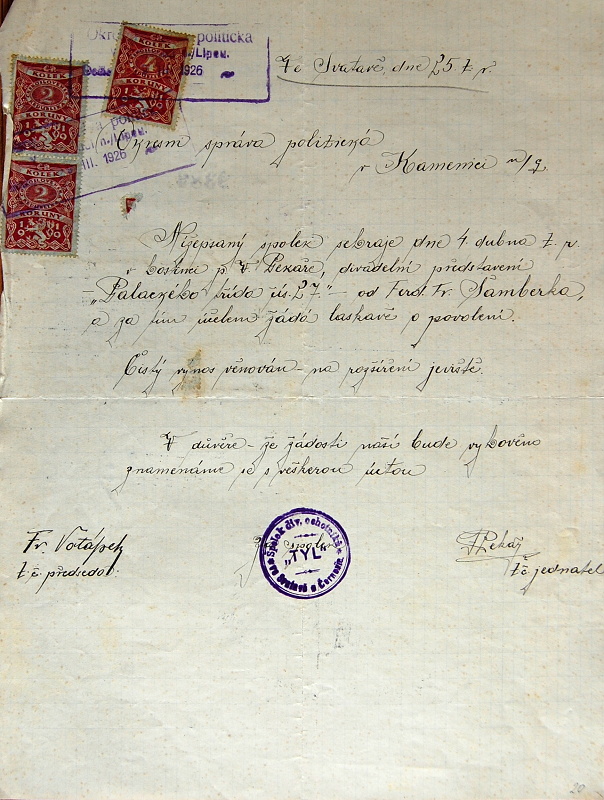 Okre politická
n./Lipou.
1926
KOLEK
4
KOLEK
2
KORUNY
KOLEK
2
KORUNY
III. 1926
Ve Svatavě, dne 25. t. r.
Okresní správa politická
v Kamenici n/L.
Nížepsaný spolek sehraje dne 4. dubna t. r.
v hostinci p. V. Pekaře, divadelní představení
„Palackého třída čís. 27." – od Ferd. Fr. Šamberka,
a za tím účelem žádá laskavě o povolení.
Čistý výnos věnován – na rozšíření jeviště.
V důvěře – že žádosti naší bude vyhověno
znamenáme se s veškerou úctou
Fr. Votápek
t. č. předseda.
Za spolek
Spolek div. ochotníků
„TYL"
ve Svatavě u Černovic
Pekař
t. č. jednatel
20